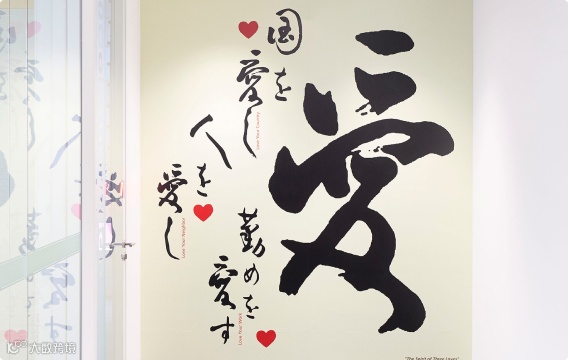 愛
国を
愛し
Love Your Country
人を
愛し
Love Your Neighbour
勤めを
愛す
Love Your Work
"The Spirit of Three Loves"
大数跨境